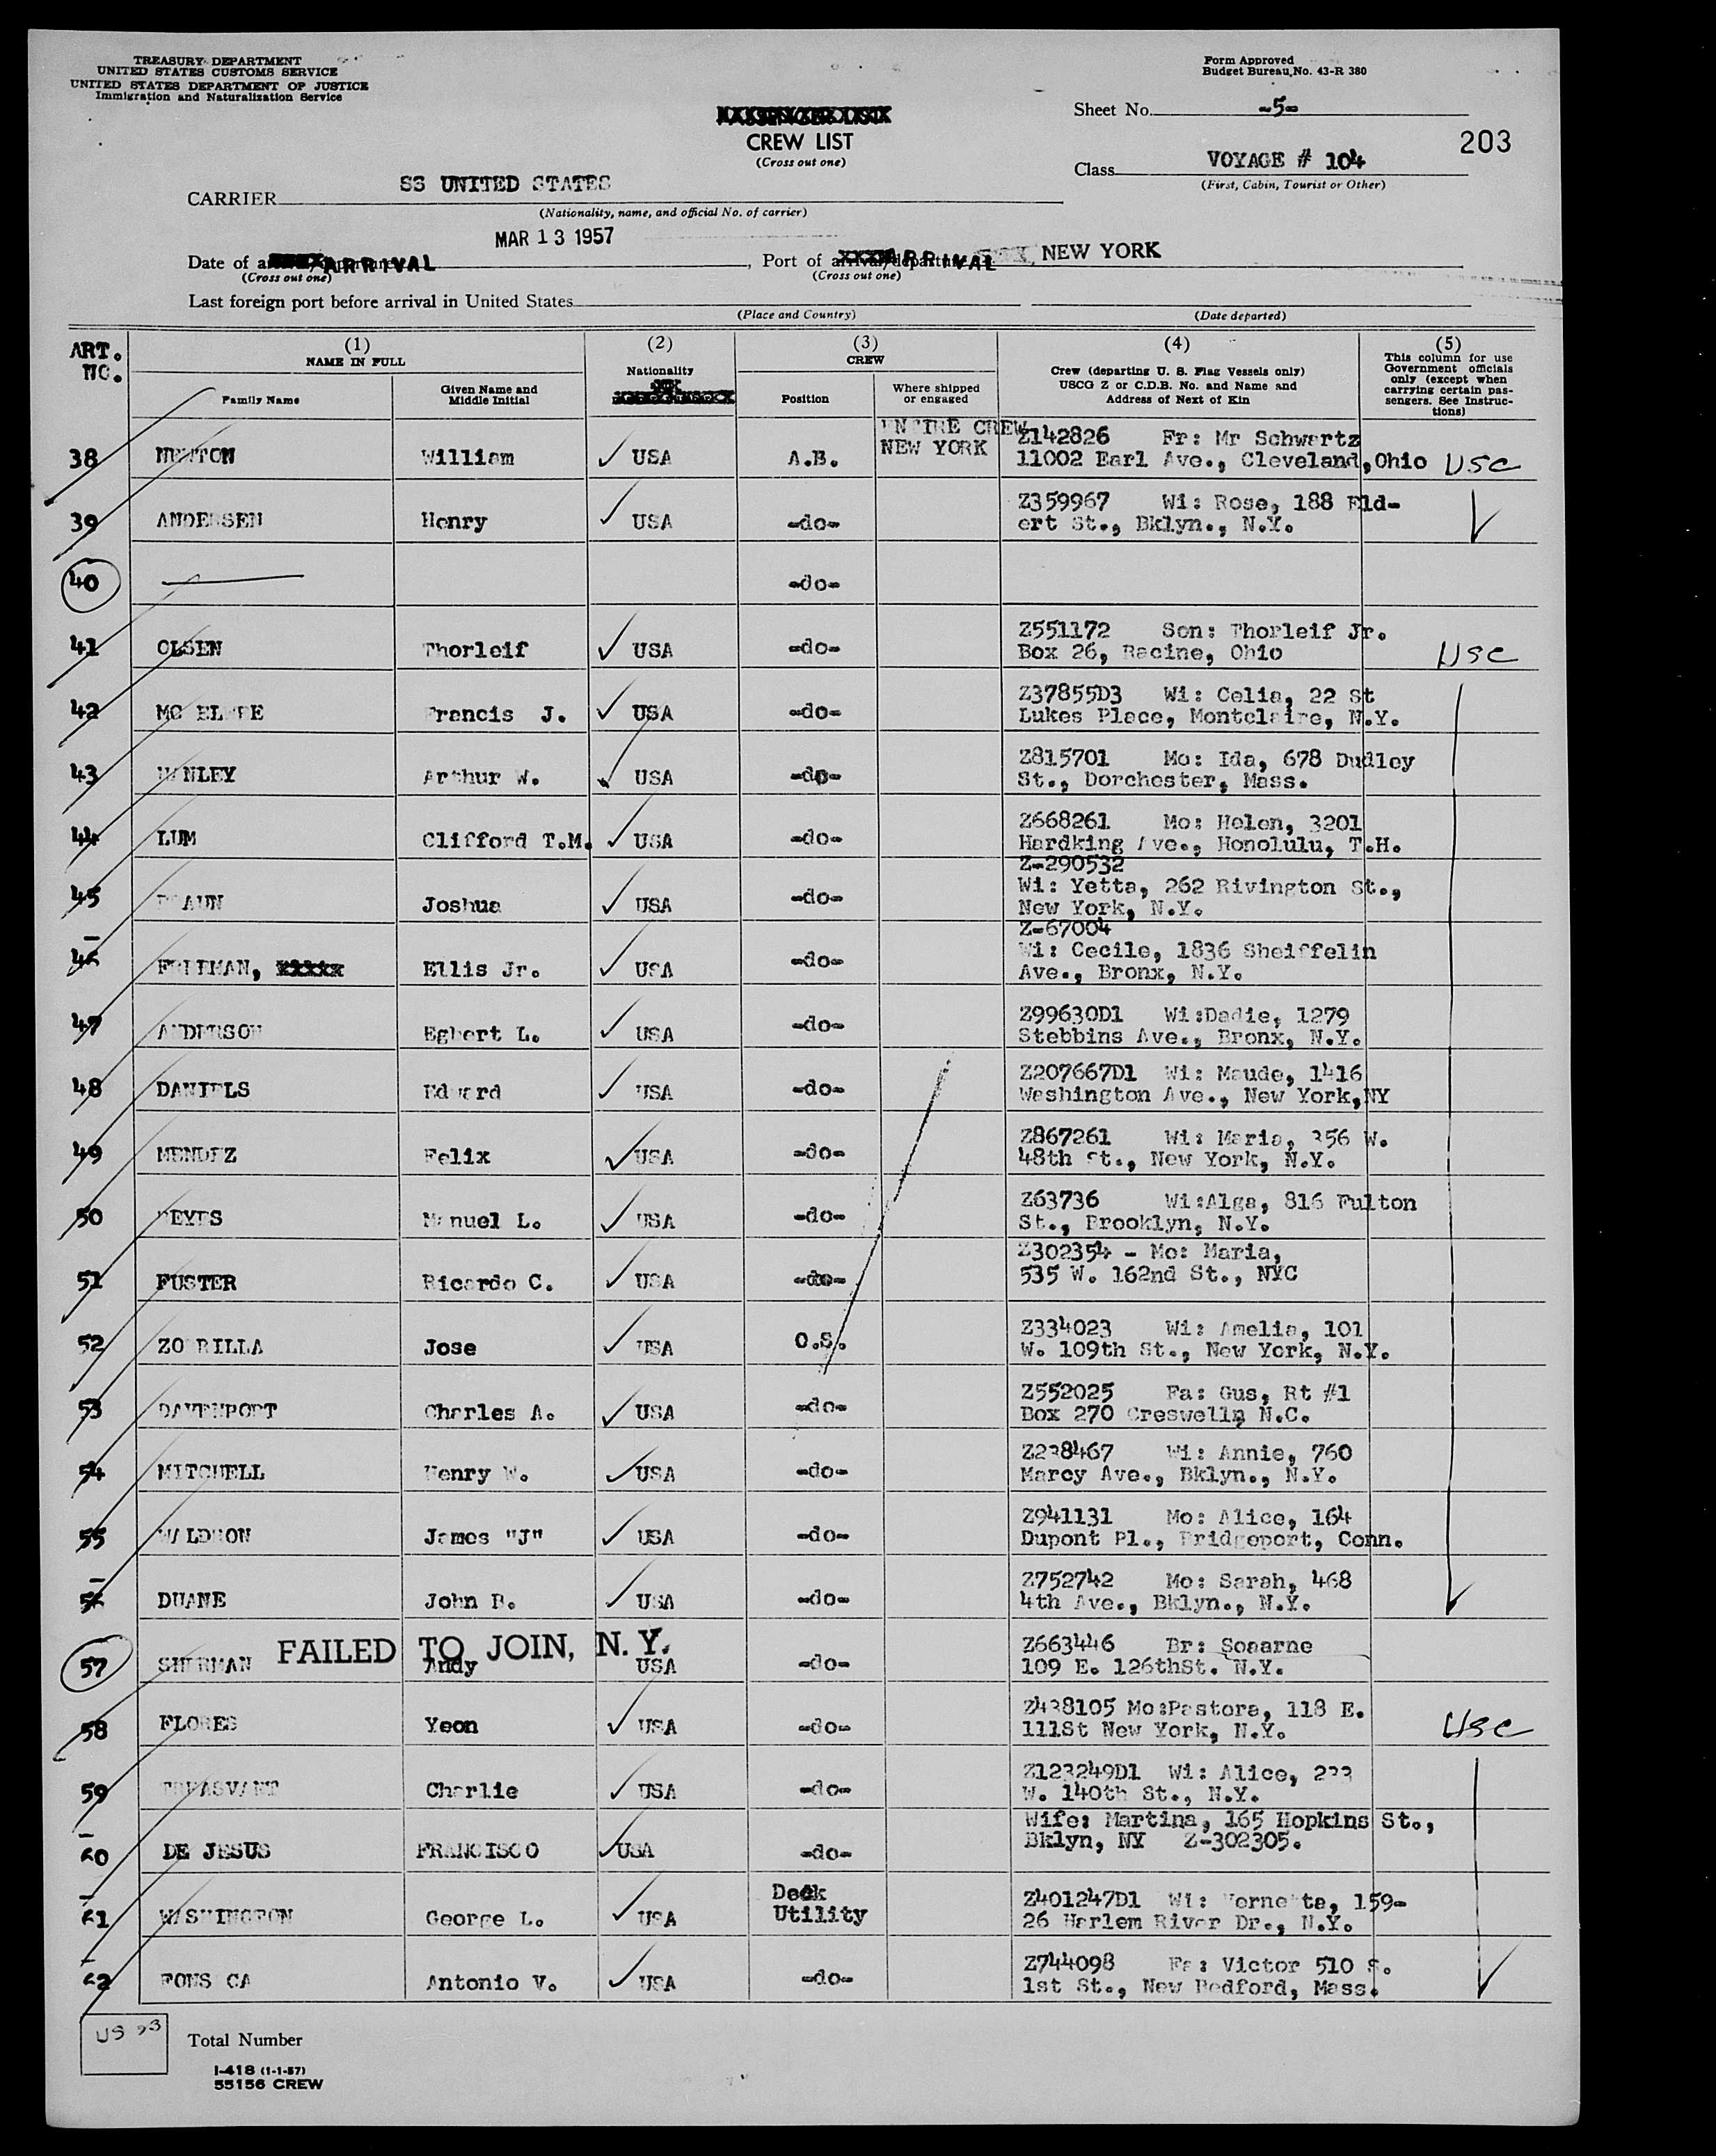 TREASURY DEPARTMENT
UNITED STATES CUSTOMS SERVICE
UNITED STATES DEPARTMENT OF JUSTICE
Immigration and Naturalization Service
Form Approved
Budget Bureau No. 43-R 380
Sheet No. -5-
203
CREW LIST
(Cross out one)
Class VOYAGE # 104
(First, Cabin, Tourist or Other)
CARRIER SS UNITED STATES
(Nationality, name, and official No. of carrier)
MAR 13 1957
Date of ARRIVAL, Port of ARRIVAL NEW YORK
(Cross out one) (Cross out one)
Last foreign port before arrival in United States
(Place and Country) (Date departed)
ART. NO.
(1) NAME IN FULL
Family Name
Given Name and Middle Initial
(2) Nationality
(3) CREW
Position
Where shipped or engaged
(4) Crew (departing U. S. Flag Vessels only) USCG Z or C.D.B. No. and Name and Address of Next of Kin
(5) This column for use Government officials only (except when carrying certain passengers. See Instructions)
ENTIRE CREW
NEW YORK
38 NEWTON William USA A.B. Z142826 Fr: Mr Schwartz
11002 Earl Ave., Cleveland, Ohio USC
39 ANDERSEN Henry USA -do- Z359967 Wi: Rose, 188 Eld-
ert St., Bklyn., N.Y.
40 -do-
41 OLSEN Thorleif USA -do- Z551172 Son: Thorleif Jr.
Box 26, Racine, Ohio USC
42 Francis J. USA -do- Z37855D3 Wi: Celia, 22 St
Lukes Place, Montclaire, N.Y.
43 Arthur W. USA -do- Z815701 Mo: Ida, 678 Dudley
St., Dorchester, Mass.
44 LUM Clifford T.M. USA -do- Z668261 Mo: Helen, 3201
Hardking Ave., Honolulu, T.H.
45 Joshua USA -do- Z-290532
Wi: Yetta, 262 Rivington St.,
New York, N.Y.
46 Ellis Jr. USA -do- Z-67004
Wi: Cecile, 1836 Sheiffelin
Ave., Bronx, N.Y.
47 ANDERSON Egbert L. USA -do- Z99630D1 Wi:Dadie, 1279
Stebbins Ave., Bronx, N.Y.
48 DANIELS Edward USA -do- Z207667D1 Wi: Maude, 1416
Washington Ave., New York,NY
49 MENDEZ Felix USA -do- Z867261 Wi: Maria, 356 W.
48th St., New York, N.Y.
50 REYES Manuel L. USA -do- Z63736 Wi:Alga, 816 Fulton
St., Brooklyn, N.Y.
51 FUSTER Ricardo C. USA -do- Z302354 - Mo: Maria,
535 W. 162nd St., NYC
52 ZORRILLA Jose USA O.S. Z334023 Wi: Amelia, 101
W. 109th St., New York, N.Y.
53 DAVENPORT Charles A. USA -do- Z552025 Fa: Gus, Rt #1
Box 270 Creswell, N.C.
54 MITCHELL Henry W. USA -do- Z238467 Wi: Annie, 760
Marcy Ave., Bklyn., N.Y.
55 WALDRON James "J" USA -do- Z941131 Mo: Alice, 164
Dupont Pl., Bridgeport, Conn.
56 DUANE John USA -do- Z752742 Mo: Sarah, 468
4th Ave., Bklyn., N.Y.
FAILED TO JOIN, N. Y.
57 SHERMAN Andy USA -do- Z663446 Br:
109 E. 126thSt. N.Y.
58 FLORES Yeon USA -do- Z438105 Mo:Pastora, 118 E.
111St New York, N.Y. USC
59 Charlie USA -do- Z123249D1 Wi: Alice, 233
W. 140th St., N.Y.
60 DE JESUS FRANCISCO USA -do- Wife: Martina, 165 Hopkins St.,
Bklyn, NY Z-302305.
61 WASHINGTON George L. USA Deck Utility Z401247D1 Wi: 159-
26 Harlem River Dr., N.Y.
62 FONSECA Antonio V. USA -do- Z744098 Fa: Victor 510 S.
1st St., New Bedford, Mass.
US 93
Total Number
I-418 (1-1-57)
55156 CREW